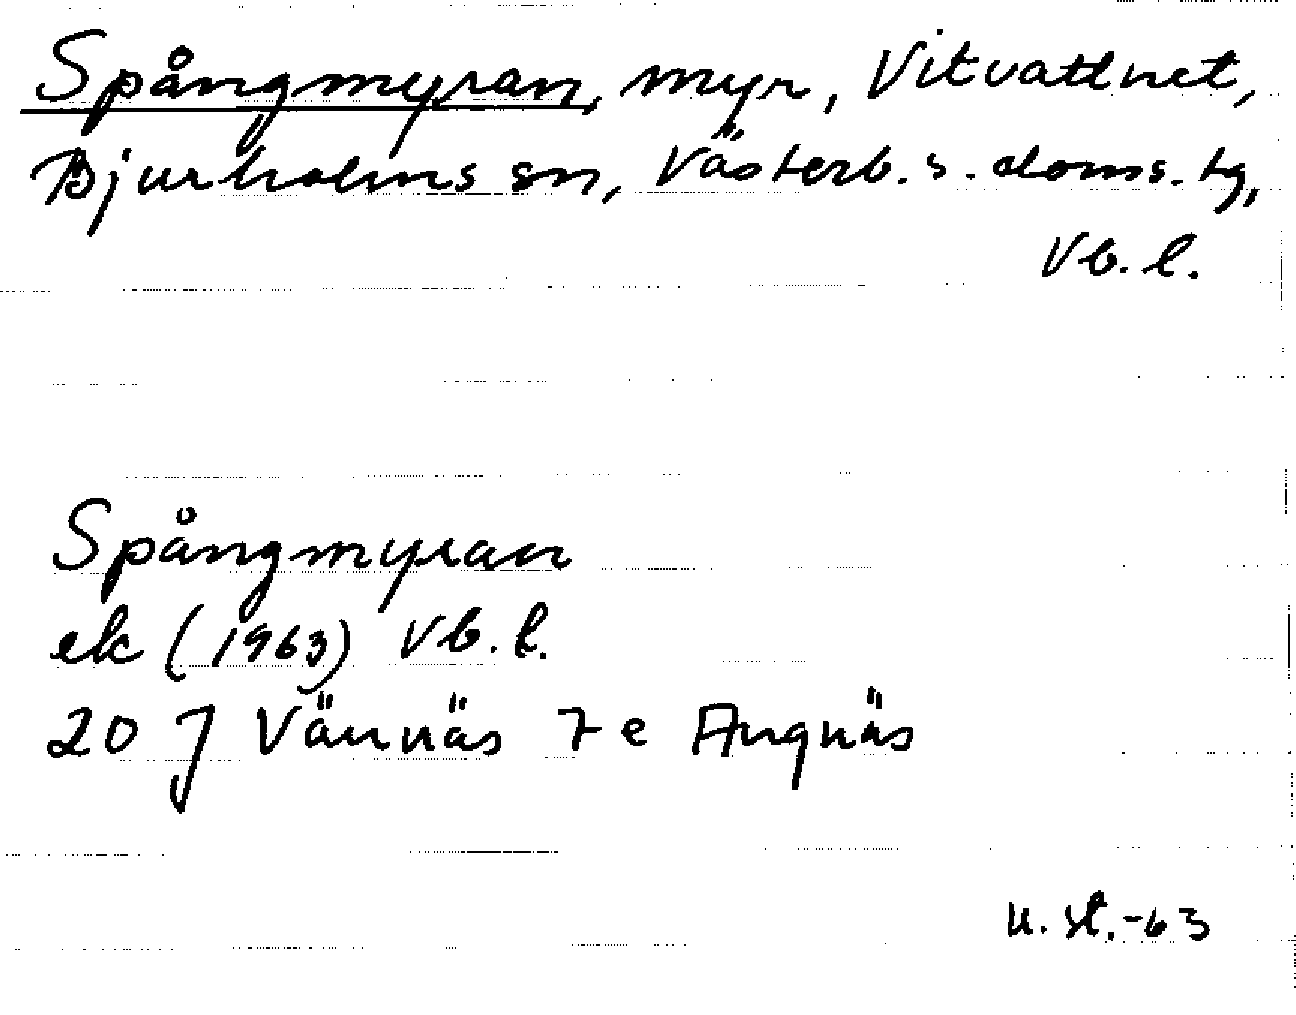 Spångmyran, myr, Vitvattnet,
Bjurholms sn, Västerb. s. doms. tg,
Vb. l.
Spångmyran
ek (1963) Vb. l.
20 J Vännäs 7 e Angnäs
U. St. -63